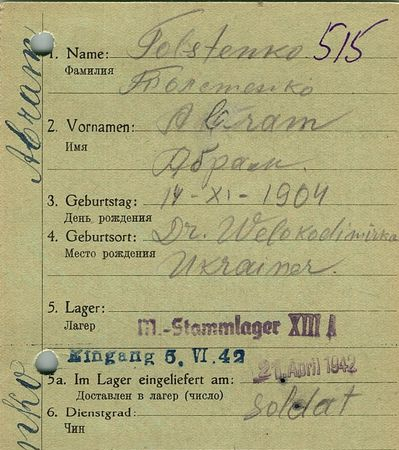 1. Name: Tolstenko 515
Фамилия Толстенко
2. Vornamen: Abram
Имя Абрам.
3. Geburtstag: 14-XI-1904
День рождения
4. Geburtsort: Dr. Welokodimirka
Место рождения Ukrainer.
5. Lager: M.-Stammlager XIII A
Лагер
Eingang 5. VI. 42
21. April 1942
5a. Im Lager eingeliefert am:
Доставлен в лагер (число)
6. Dienstgrad: Soldat
Чин
Abram
nko